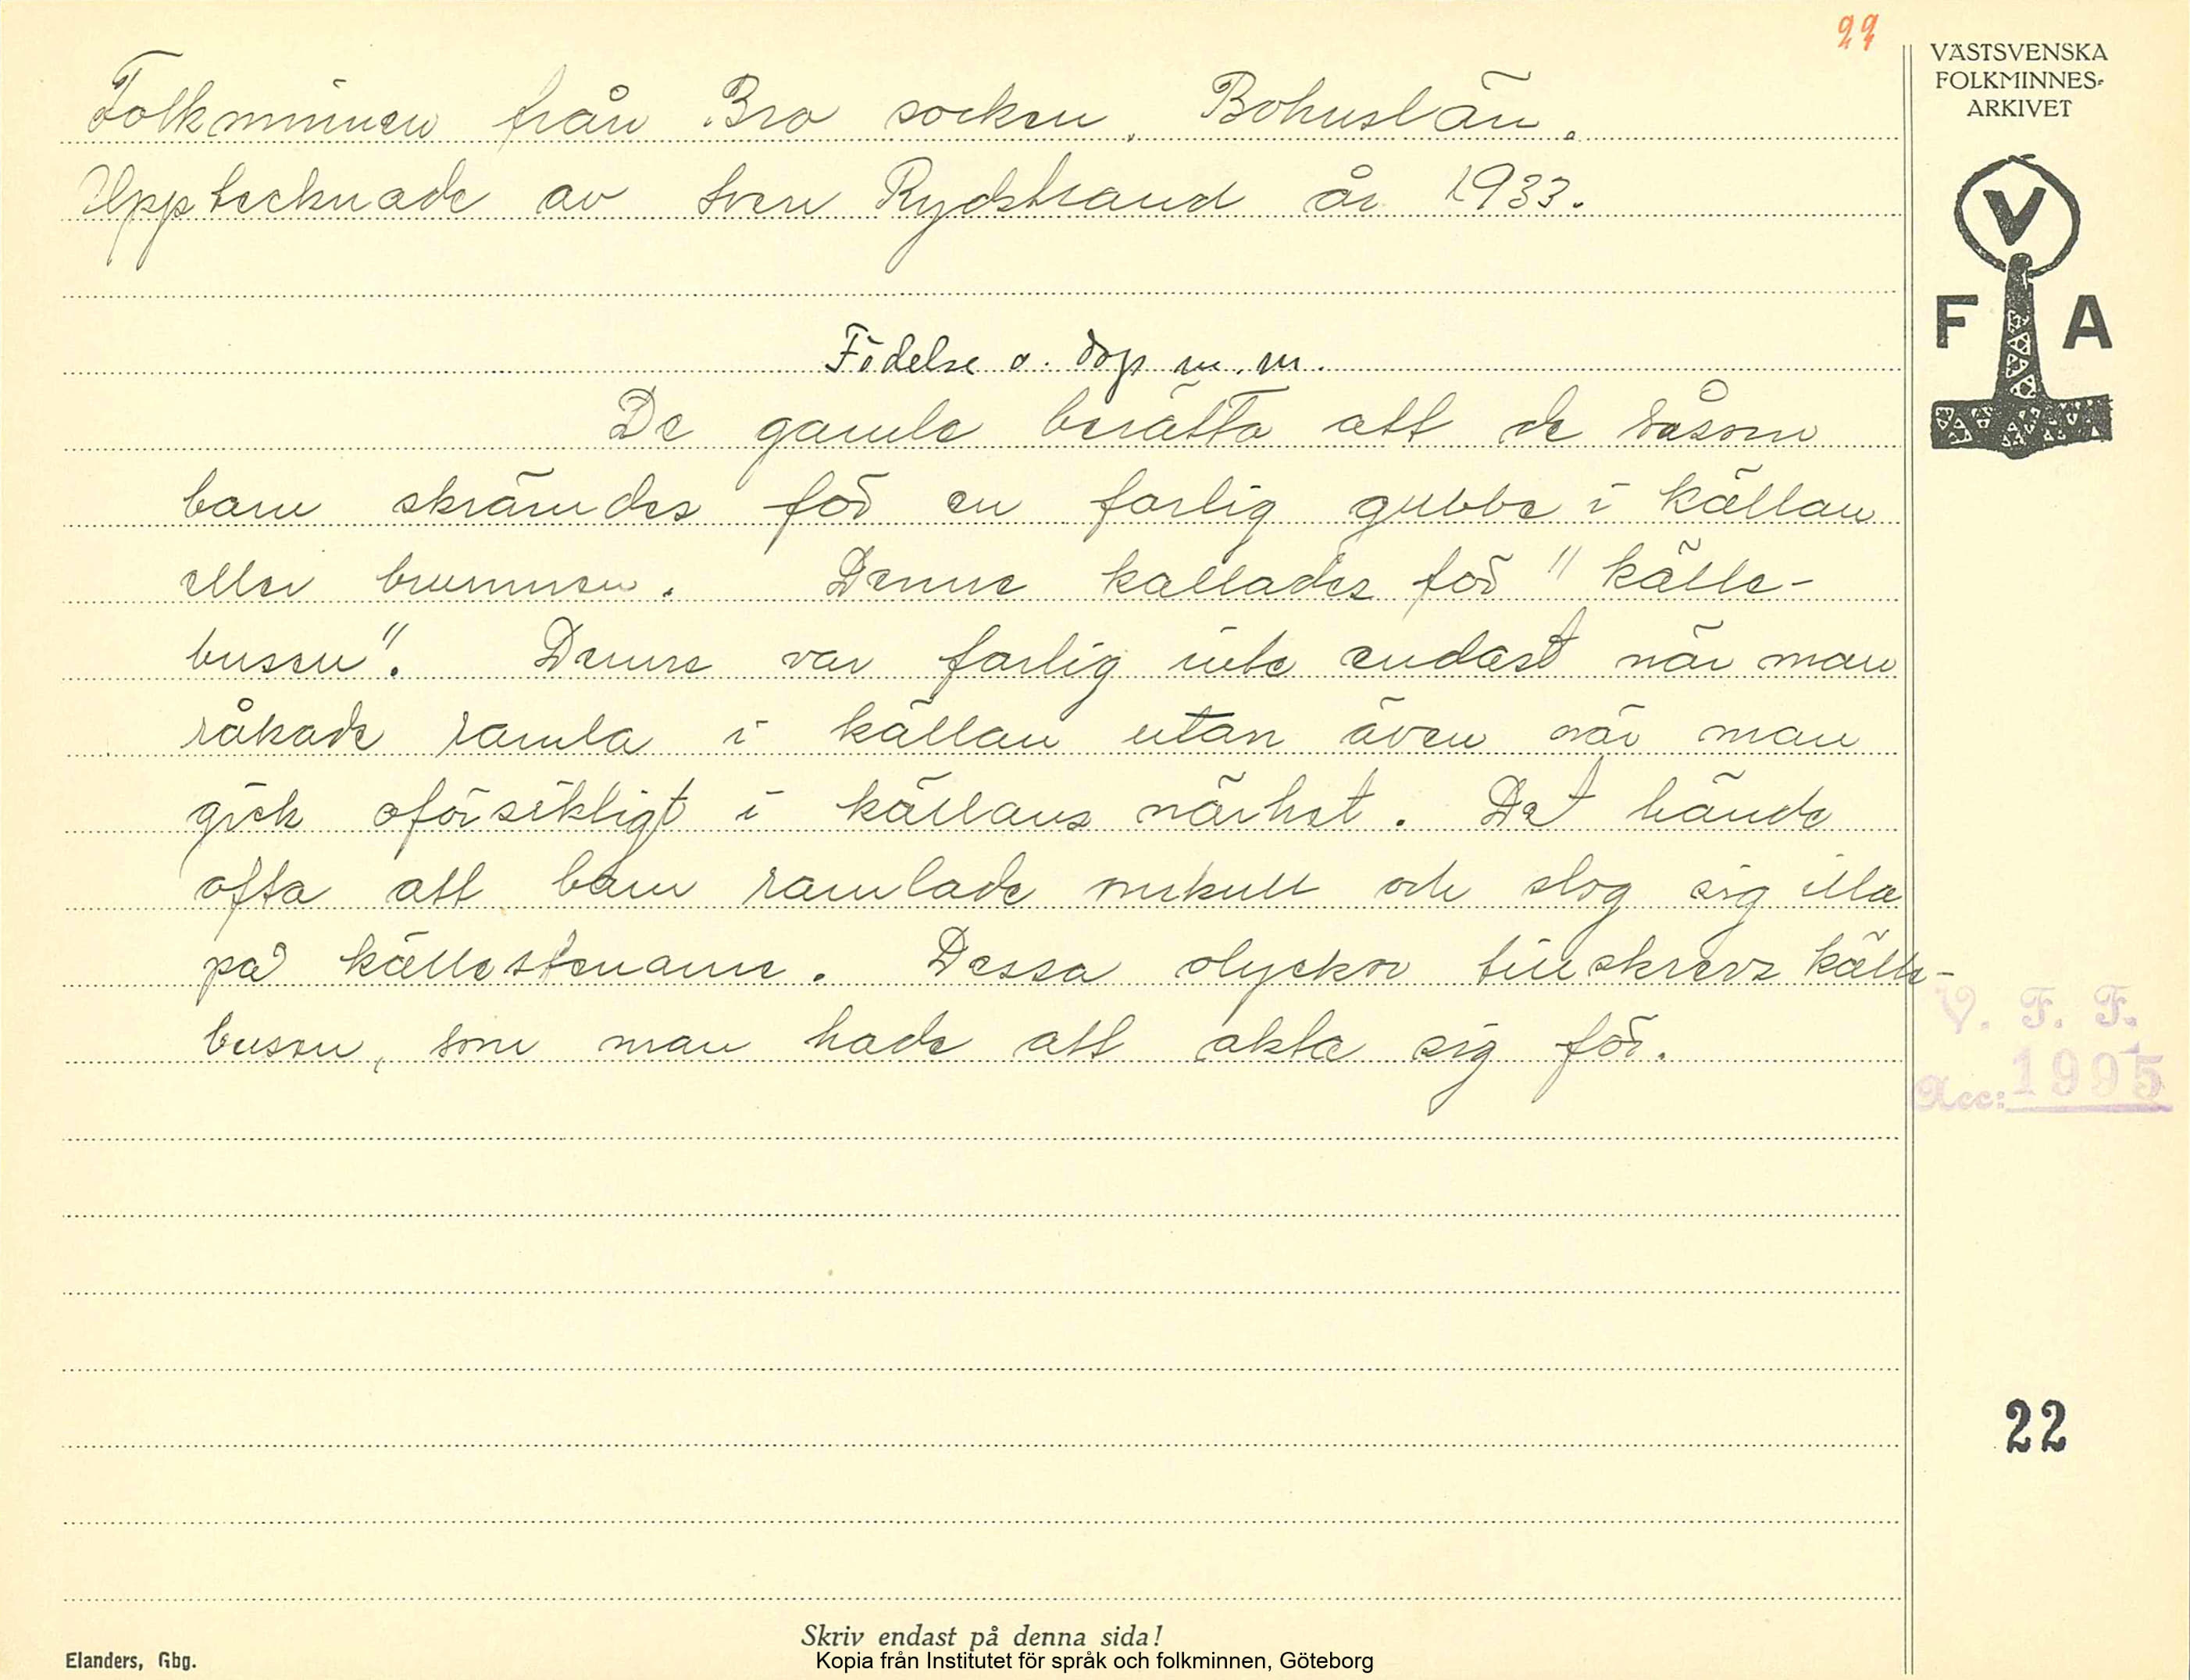 22
VÄSTSVENSKA
FOLKMINNES-
ARKIVET
V
F A
Folkminnen från Bro socken, Bohuslän.
Upptecknade av Sven Rydstrand år 1933.
Födelse o. dop m. m.
De gamle berätta att de såsom
barn skrämdes för en farlig gubbe i källan
eller brunnen. Denne kallades för "källe-
bussen". Denne var farlig inte endast när man
råkade ramla i källan utan även när man
gick oförsiktigt i källans närhet. Det hände
ofta att barn ramlade omkull och slog sig illa
på källestenarne. Dessa olyckor tillskrevs källe-
busen, som man hade att akta sig för.
V. F. F.
Acc: 1995
22
Skriv endast på denna sida!
Elanders, Gbg.
Kopia från Institutet för språk och folkminnen, Göteborg